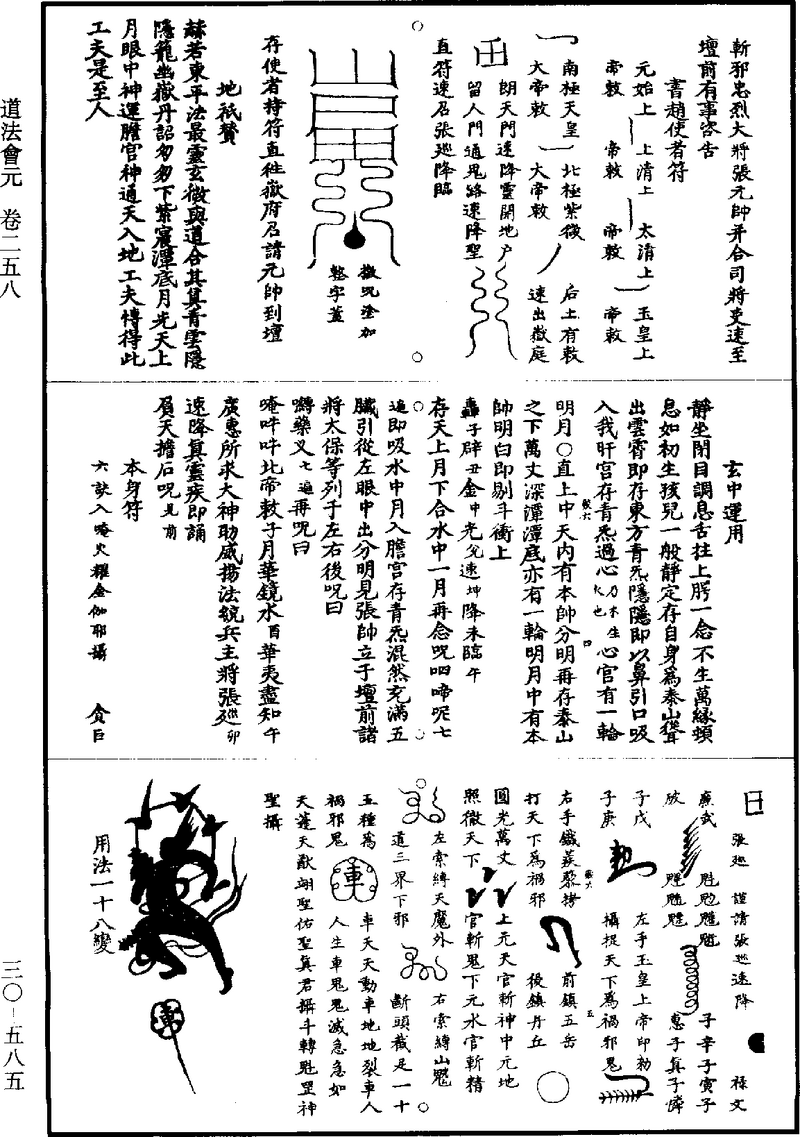 道法會元　卷二五八
三〇－五八五
斬邪忠烈大將張元帥并合司將吏速至
壇前有事咨告
書趙使者符
元始上　上清上　太清上　玉皇上
帝敕　帝敕　帝敕　帝敕
南極天皇　北極紫微　后土有敕
大帝敕　大帝敕　速出嶽庭
朗天門速降靈開地戶
留人門通鬼路速降聖
直符速召張巡降臨
敕咒塗加
整字蓋
存使者持符直往嶽府召請元帥到壇
地祇贊
赫若東平法最靈玄微與道合其真青雲隱
隱籠幽嶽丹詔匆匆下紫宸潭底月光天上
月眼中神運膽宮神通天入地工夫愽得此
工夫是至人
玄中運用
靜坐閉目調息舌拄上腭一念不生萬緣頓
息如初生孩兒一般靜定存自身為泰山聳
出雲霄即存東方青炁隱隱即以鼻引口吸
入我肝宮存青炁過心乃木生火也心宮有一輪
明月〇直上中天內有本帥分明再存泰山
之下萬丈深潭潭底亦有一輪明月中有本
帥明白即剔斗衝上
轟子辟丑金中光兌速坤降未臨午
存天上月下合水中一月再念咒呬啼呢七
遍即吸水中月入膽宮存青炁混然充滿五
臟引從左眼中出分明見張帥立于壇前諸
將太保等列于左右後咒曰
嚩藥叉七遍再咒曰
唵吽吽北帝敕子月華鏡水酉華夷盡知午
廣惠所求大神助威揚法統兵主將張巡卯
速降真靈疾即誦
負天擔石咒見前
本身符
六訣入唵火耀金伽耶攝
張巡　謹請張巡速降　祿文
子戊　左手玉皇上帝印勑
子庚　攝捉天下為禍邪鬼
右手鐵蒺藜捞　前鎮五岳
打天下為禍邪　後鎮丹丘
圓光萬丈　上元天官斬神中元地
照徹天下　官斬鬼下元水官斬精
左索縛天魔外　右索縛山魈
道三界下邪　斷頭截足一十
五種為　車天天動車地地裂車人
禍邪鬼　人生車鬼鬼滅急急如
天蓬天猷翊聖佑聖真君攝斗轉魁罡神
聖攝
用法一十八變